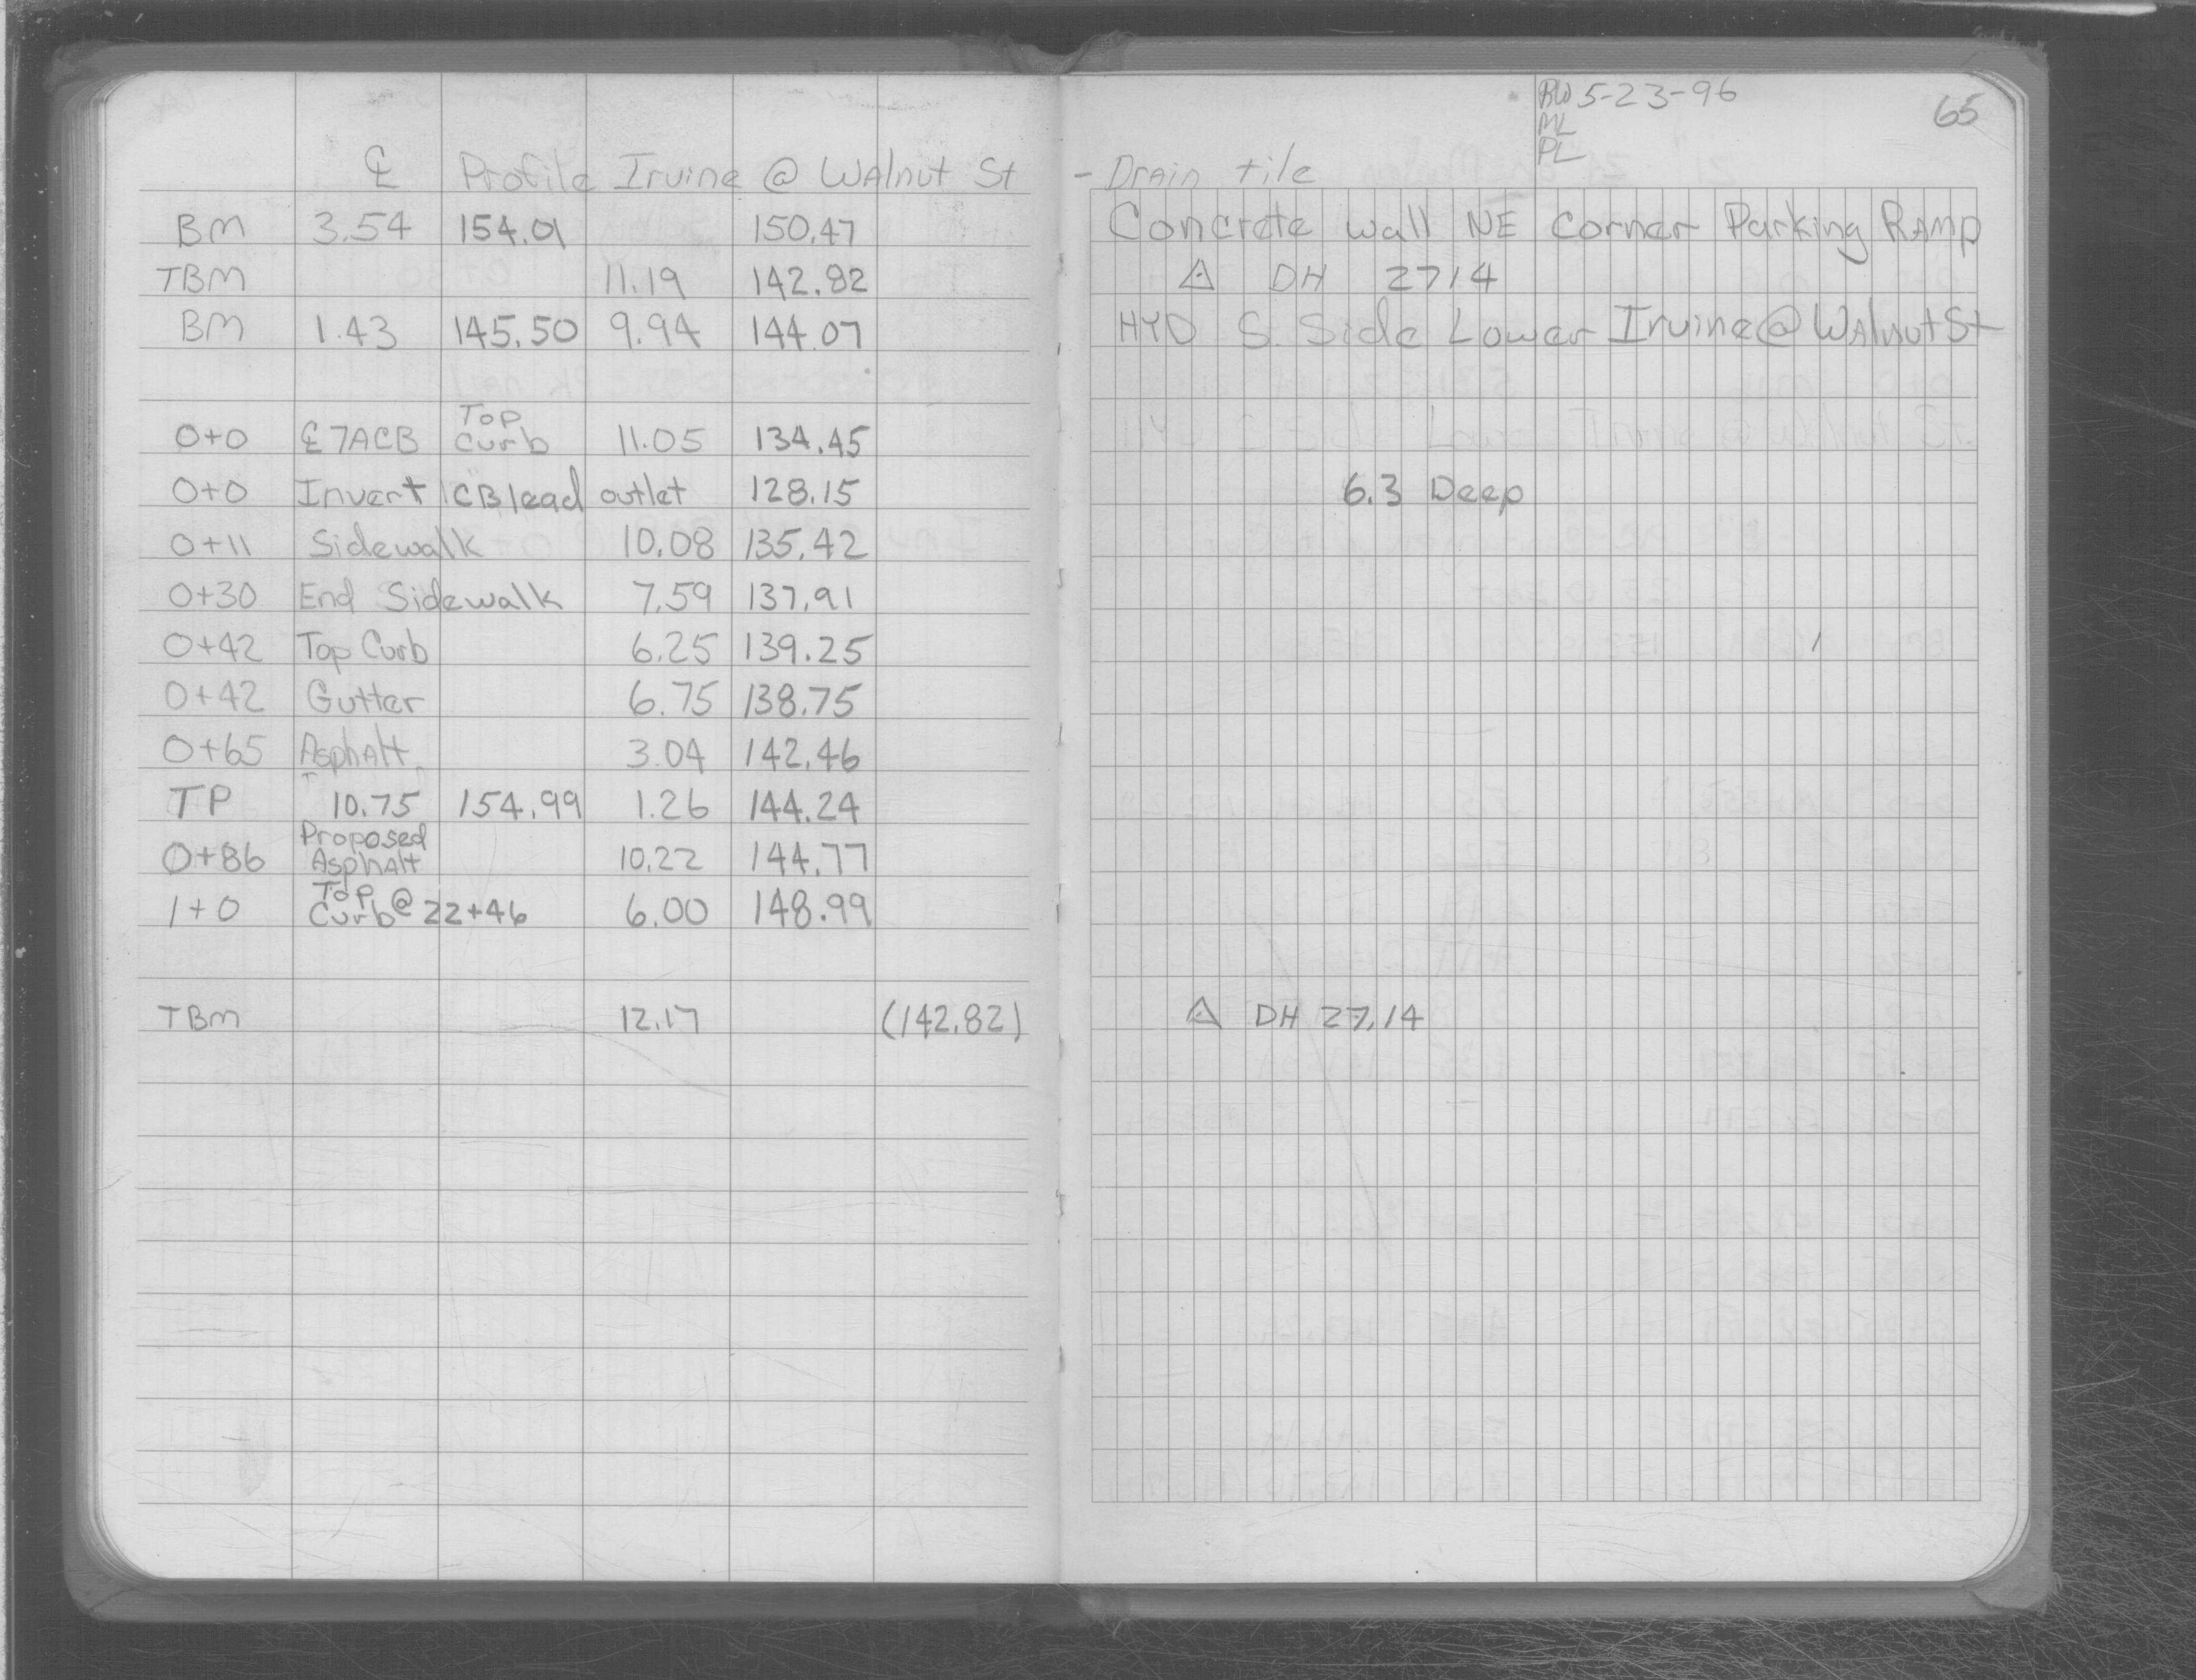 BW 5-23-96
ML
PL
65
℄ Profile Irvine @ Walnut St - Drain tile
BM 3.54 154.01 150.47 Concrete wall NE Corner Parking Ramp
TBM 11.19 142.82 △ DH 2714
BM 1.43 145.50 9.94 144.07 HYD S. Side Lower Irvine @ Walnut St
0+0 ℄ 7ACB Top Curb 11.05 134.45
0+0 Invert CB lead outlet 128.15 6.3 Deep
0+11 Sidewalk 10.08 135.42
0+30 End Sidewalk 7.59 137.91
0+42 Top Curb 6.25 139.25
0+42 Gutter 6.75 138.75
0+65 Asphalt 3.04 142.46
TP 10.75 154.99 1.26 144.24
0+86 Proposed Asphalt 10.22 144.77
1+0 Top Curb @ 22+46 6.00 148.99
TBM 12.17 (142.82) △ DH 27.14